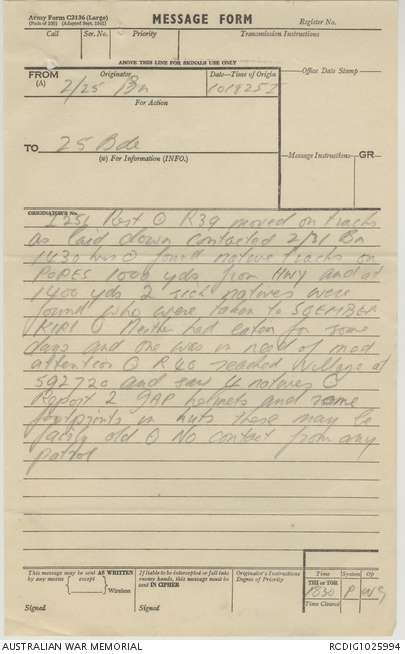 Army Form C2136 (Large)
(Pads of 100) (Adapted Sept. 1941)
MESSAGE FORM
Register No.
Call Ser. No. Priority Transmission Instructions
ABOVE THIS LINE FOR SIGNALS USE ONLY
FROM Originator Date-Time of Origin Office Date Stamp
(A) 2/25 Bn 101925I
For Action
TO 25 Bde
(W) For Information (INFO.) Message Instructions GR
ORIGINATOR'S No.
I251 O R39 moved on tracks
as laid down contacted 2/31 Bn
1430 hrs O found native tracks on
POPES 1000 yds from HWY and at
1400 yds 2 sick natives were
found who were taken to SOEMBER
KIRI O Neither had eaten for some
days and one was in need of med
attention O R40 reached village at
592720 and say 4 natives O
Report 2 JAP helmets and some
footprints in huts these may be
fairly old O No contact from any
patrol
This message may be sent AS WRITTEN by any means except Wireless
If liable to be intercepted or fall into enemy hands, this message must be sent IN CIPHER
Originator's Instructions Degree of Priority
Time System Op
THI or TOR
1830 P
Time Cleared
Signed Signed
AUSTRALIAN WAR MEMORIAL RCDIG1025994